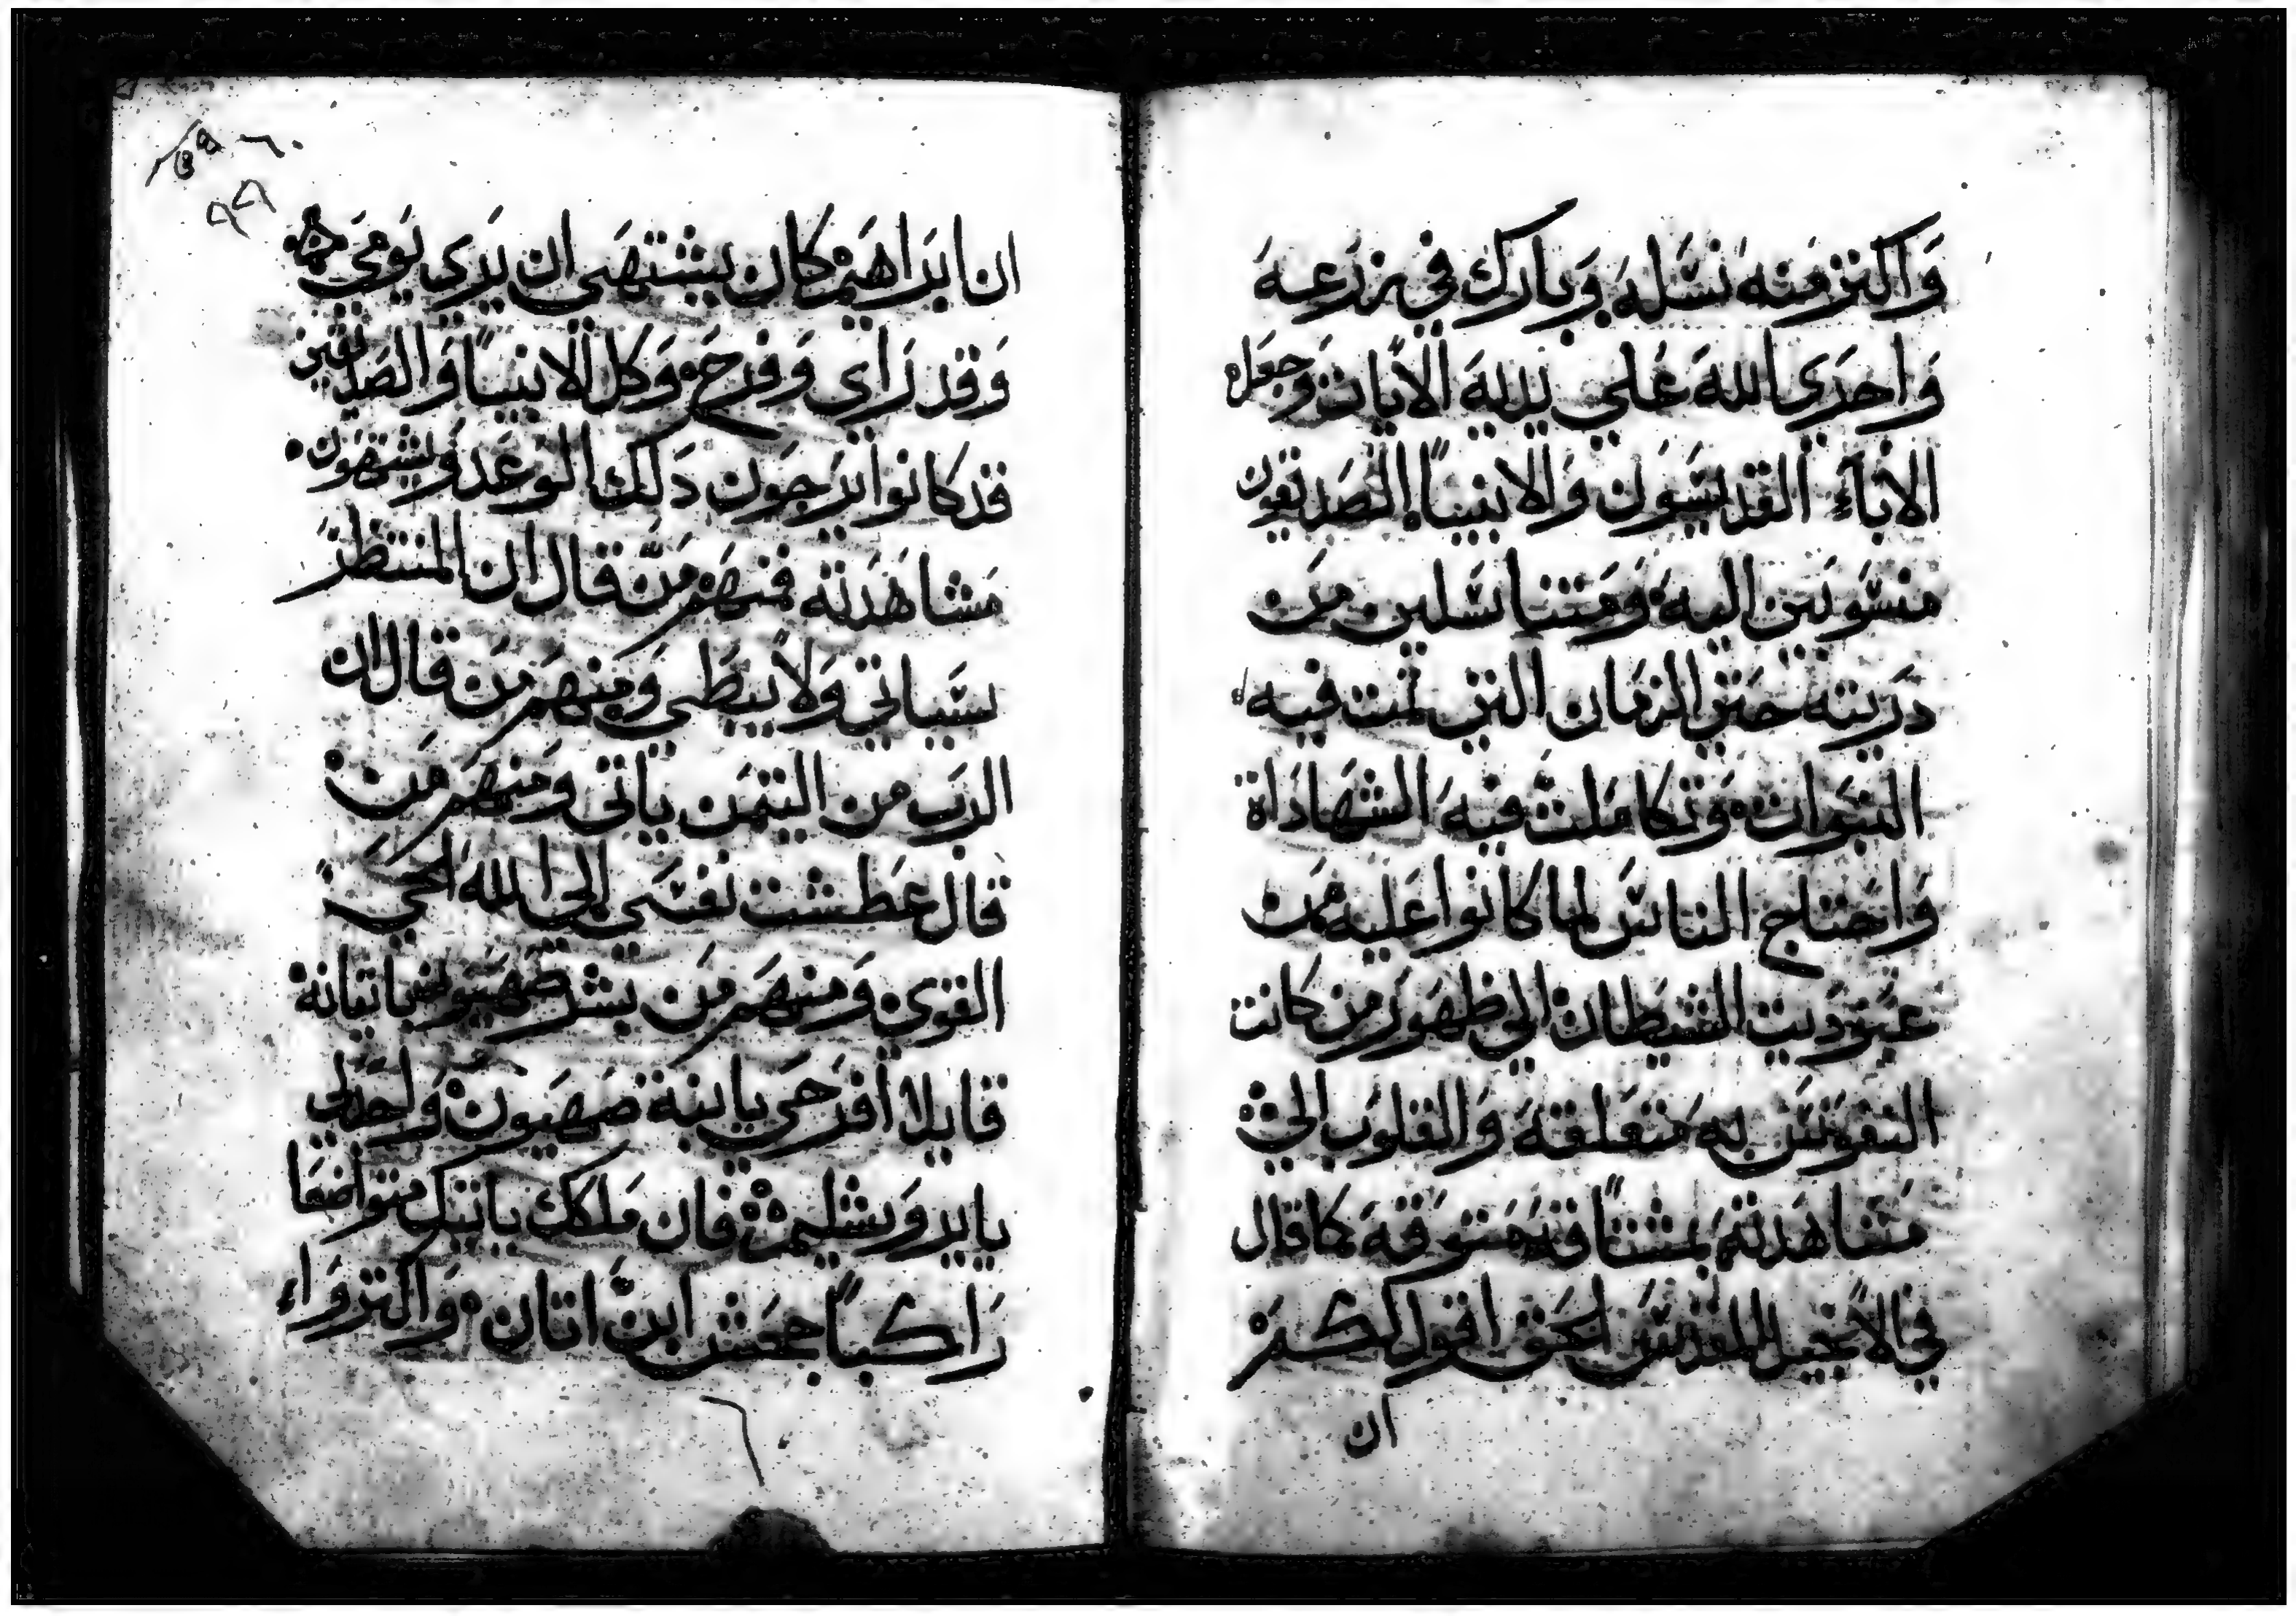 وَاكثر منه نسله وَبارك في زرعه
وَاجري الله علي يديه الايات وجعل
الاباء القديسون وَالانبيا الصديقون
منسوبين اليه ومتناسلين من
ذريته حتي الزمان التي تمت فيه
النبوات وتكاملت فيه الشهاداة
وَاحتاج الناس لما كانوا عليه من
عبوديت الشيطان الي ظهور من كانت
النفوس به متعلقة وَالقلوب الي
مشاهدته مشتاقة متوقة كما قال
في الانجيل المقدس الحق اقول لكم
ان
ان ابراهيم كان يشتهي ان يري يومي هذا
وَقد راي وَفرح وَكل الانبيا وَالصديقين
قد كانوا يرجون ذلك الوعد ويشتهون
مشاهدته فمنهم من قال ان المنتظر
سياتي وَلا يبطي ومنهم من قال ان
الرب من اليمن ياتي ومنهم من
قال عطشت نفسي الي الله الحي
القوي ومنهم من بشر صهيون باتيانه
قايلا افرحي يابنة صهيون وَاجدلي
يايروشليم فان ملكك ياتيك متواضعا
راكبا جحش ابن اتان وَاكثروَاء